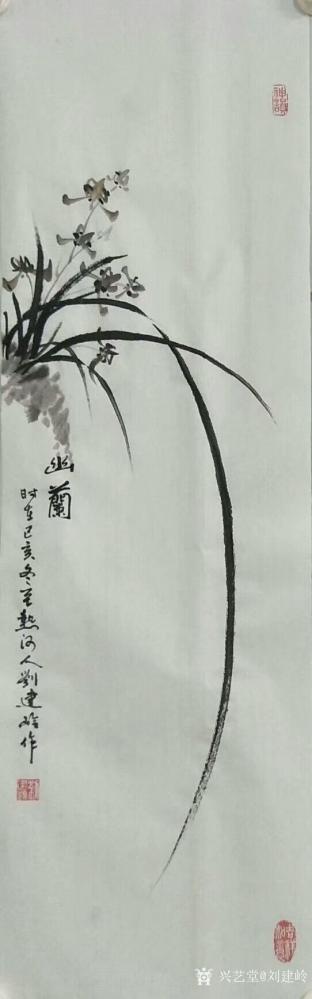 幽蘭
时在己亥冬至熱河人劉建岭作
兴艺堂@刘建岭